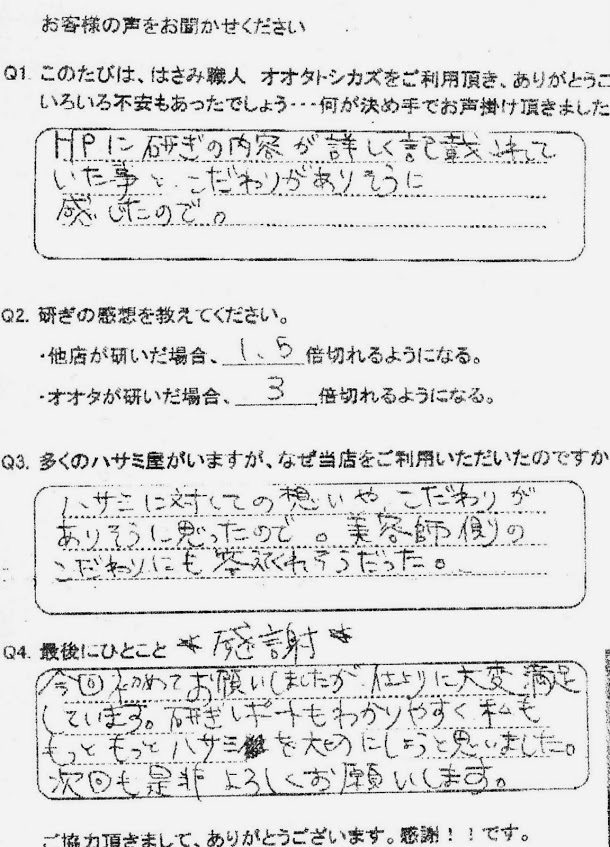 お客様の声をお聞かせください
Q1. このたびは、はさみ職人 オオタトシカズをご利用頂き、ありがとうご
いろいろ不安もあったでしょう…何が決め手でお声掛け頂きました
HPに研ぎの内容が詳しく記載されて
いた事と、こだわりがありそうに
感じたので。
Q2. 研ぎの感想を教えてください。
・他店が研いだ場合、1、5倍切れるようになる。
・オオタが研いだ場合、3倍切れるようになる。
Q3. 多くのハサミ屋がいますが、なぜ当店をご利用いただいたのですか
ハサミに対しての想いや こだわりが
ありそうに思ったので。美容師側の
こだわりにも答えてくれそうだった。
Q4. 最後にひとこと *感謝*
今回初めてお願いしましたが 仕上りに大変満足
しています。研ぎレポートもわかりやすく 私も
もっともっとハサミを大切にしようと思いました。
次回も是非よろしくお願いします。
ご協力頂きまして、ありがとうございます。感謝！！です。